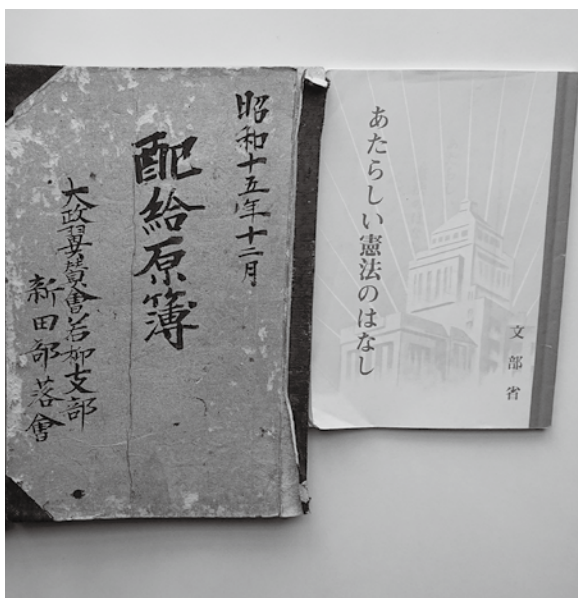 昭和十五年十二月
配給原簿
大政翼賛會若柳支部
新田部落會
あたらしい憲法のはなし
文部省